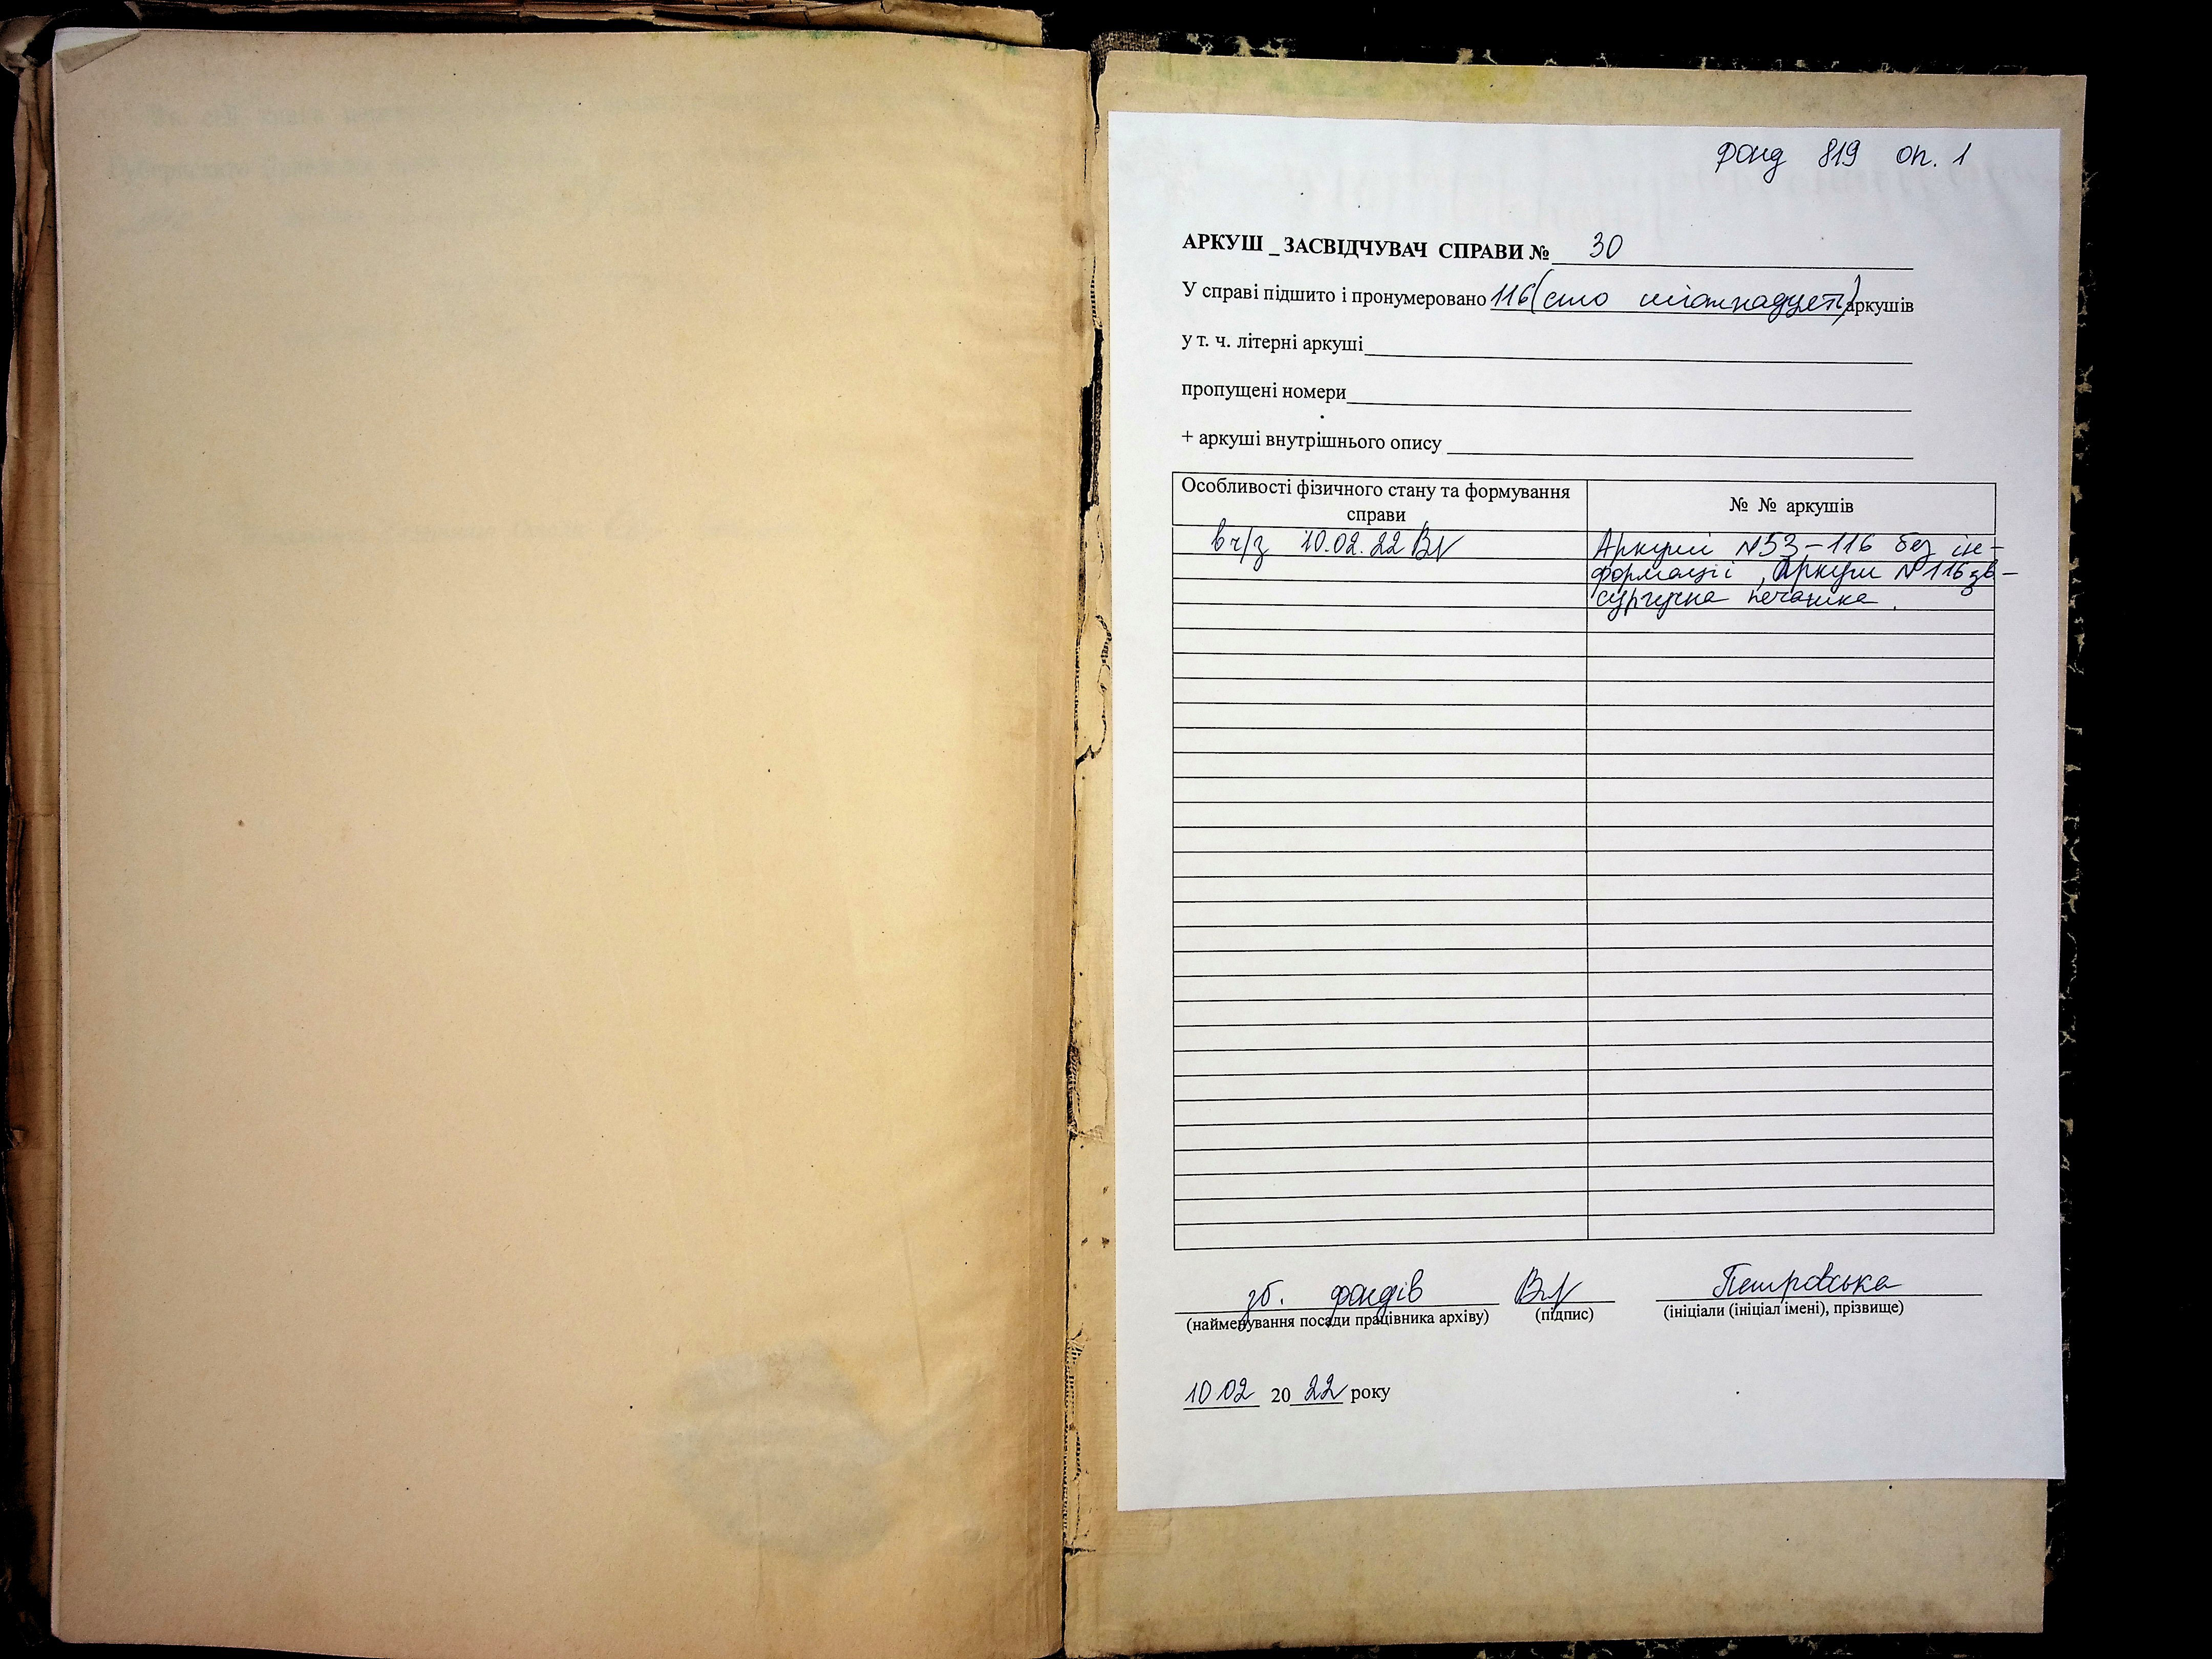 фонд 819 оп. 1
АРКУШ _ ЗАСВІДЧУВАЧ СПРАВИ № 30
У справі підшито і пронумеровано 116 (сто шістнадцять) аркушів
у т. ч. літерні аркуші
пропущені номери
+ аркуші внутрішнього опису
Особливості фізичного стану та формування справи
№ № аркушів
в ч/з 10.02.22
Аркуші №53-116 без ін-
формації, Аркуш №116зв-
сургучна печатка.
зб. фондів Петровська
(найменування посади працівника архіву) (підпис) (ініціали (ініціал імені), прізвище)
10 02 2022 року